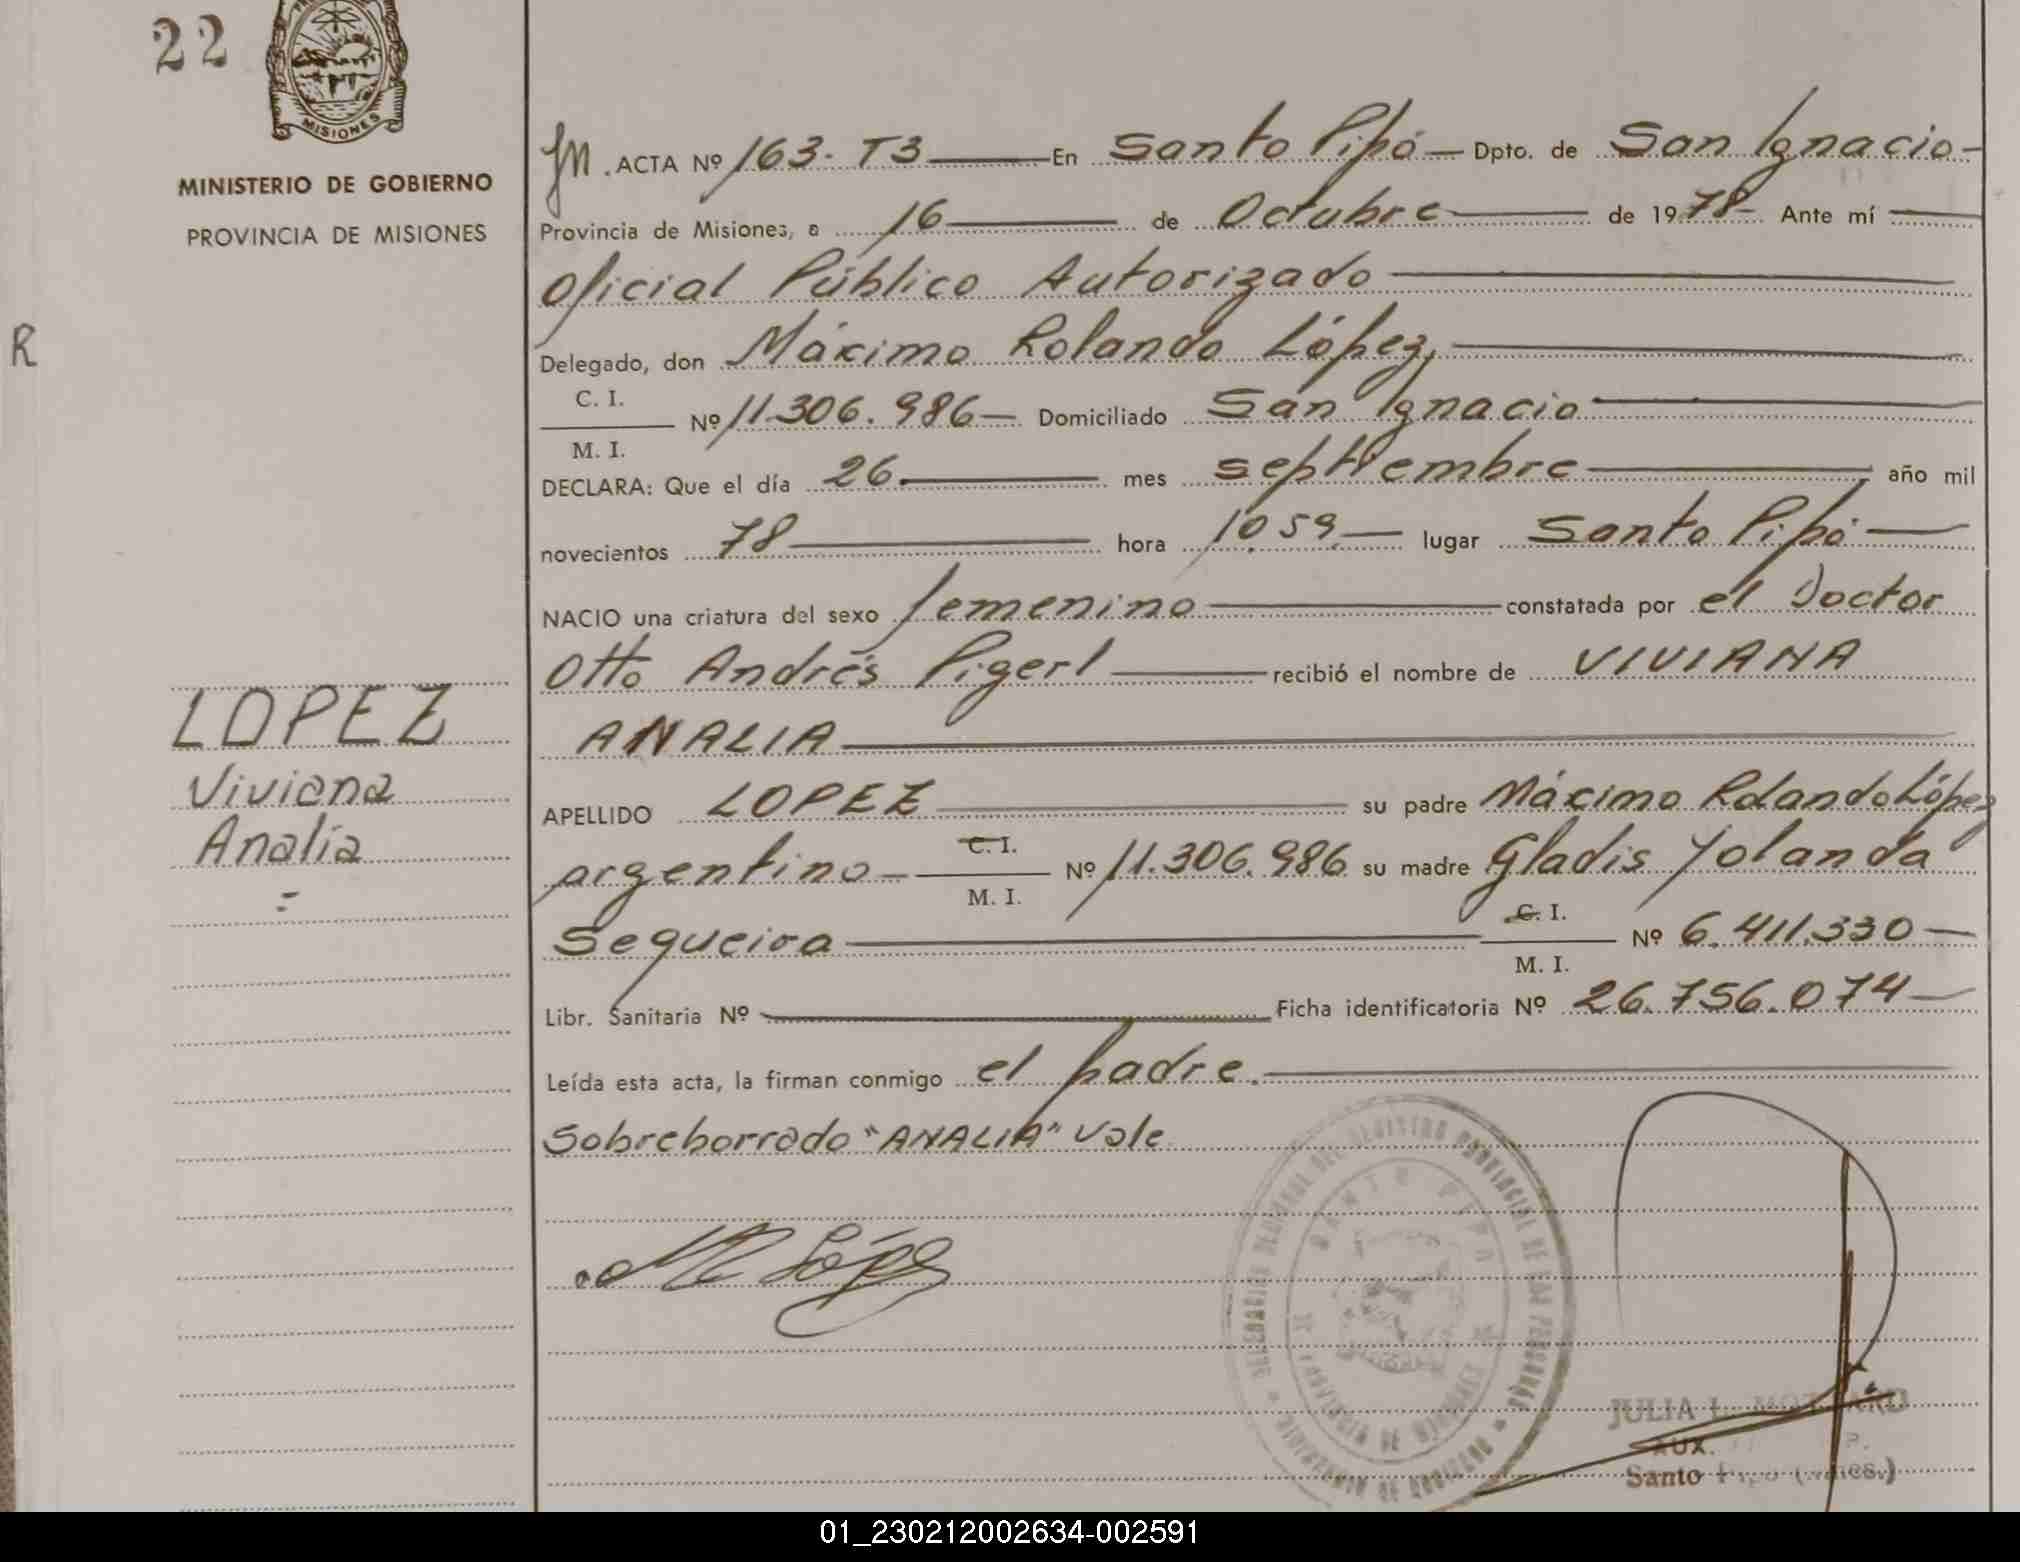 22
MISIONES
MINISTERIO DE GOBIERNO
PROVINCIA DE MISIONES
R
LOPEZ
Viviana
Analía
=
ACTA Nº 163- T3 En Santo Pipó Dpto. de San Ignacio
Provincia de Misiones, a 16 de Octubre de 1978 Ante mí
Oficial Público Autorizado
Delegado, don Máximo Rolando López,
C. I.
M. I. Nº 11.306.986 Domiciliado San Ignacio
DECLARA: Que el día 26. mes septiembre año mil
novecientos 78 hora 10.59. lugar Santo Pipó
NACIO una criatura del sexo femenino constatada por el Doctor
Otto Andrés Pigerl recibió el nombre de VIVIANA
ANALIA
APELLIDO LOPEZ su padre Máximo Rolando López
argentino C. I. M. I. Nº 11.306.986 su madre Gladis Yolanda
Sequeira C. I. M. I. Nº 6.411.330
Libr. Sanitaria Nº Ficha identificatoria Nº 26.756.074
Leída esta acta, la firman conmigo el padre.
Sobreborrado "ANALIA" Vale
López
SANTO PIPO
JULIA L.
AUX.
Santo Pipo
01_230212002634-002591